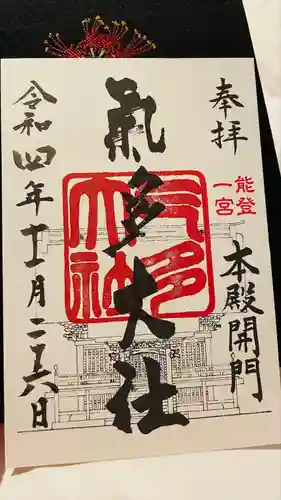 奉拝
能登
一宮
本殿開門
氣多大社
氣多大社
令和四年十一月二十六日